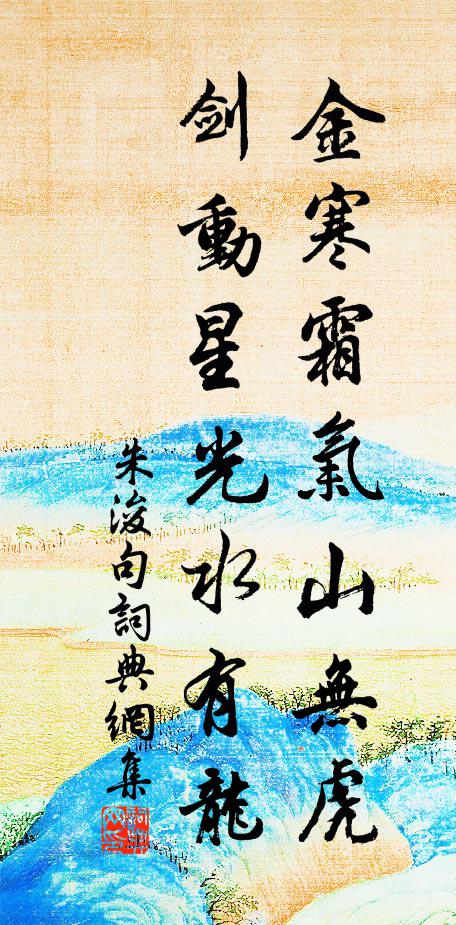 金寒霜氣山無虎
剑動星光水有龍
朱浚句詞典網集